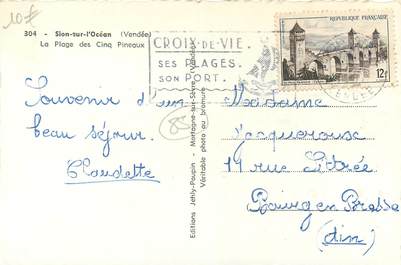 10f
304 - Sion-sur-l'Océan (Vendée)
La Plage des Cinq Pineaux
CROIX-DE-VIE.
SES PLAGES.
SON PORT.
REPUBLIQUE FRANÇAISE
12f
Souvenir d'un
beau séjour.
Claudette
85
Editions Jehly-Poupin - Mortagne-sur-Sèvre (Vendée)
Véritable photo au bromure
Madame
Jacquerouse
19 rue Littrée
Bourg en Bresse
(Ain)